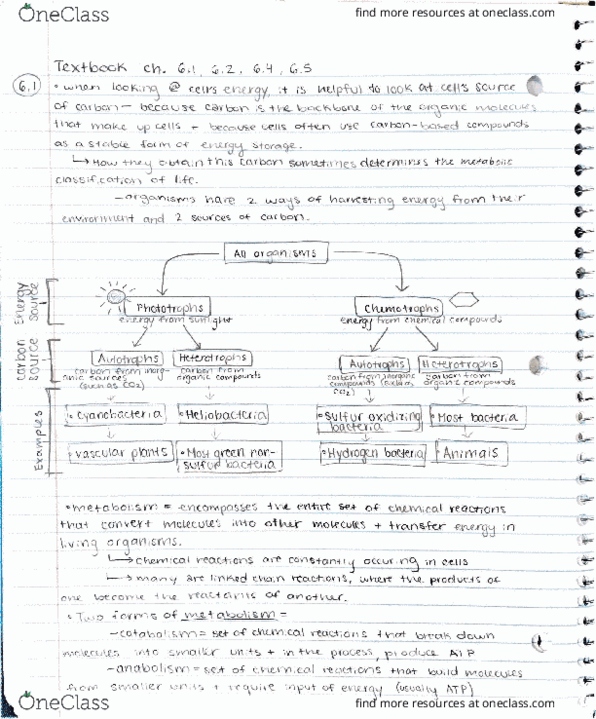 OneClass
find more resources at oneclass.com
Textbook ch. 6.1, 6.2, 6.4, 6.5
6.1 • when looking @ cell's energy, it is helpful to look at cells source
of carbon - because carbon is the backbone of the organic molecules
that make up cells + because cells often use carbon-based compounds
as a stable form of energy storage.
↳ How they obtain this carbon sometimes determines the metabolic
classification of life.
- organisms have 2 ways of harvesting energy from their
environment and 2 sources of carbon.
All organisms
Energy source
Phototrophs
energy from sunlight
Chemotrophs
energy from chemical compounds
Carbon source
Autotrophs
carbon from inorganic sources (such as CO2)
Heterotrophs
carbon from
organic compounds
Autotrophs
carbon from inorganic
compounds (such as
CO2)
Heterotrophs
carbon from
organic compounds
Examples
• Cyanobacteria
• Heliobacteria
• Sulfur oxidizing
bacteria
• Most bacteria
• vascular plants
• Most green non-
sulfur bacteria
• Hydrogen bacteria
• Animals
• metabolism = encompasses the entire set of chemical reactions
that convert molecules into other molecules + transfer energy in
living organisms.
↳ chemical reactions are constantly occuring in cells
↳ many are linked chain reactions, where the products of
one become the reactants of another.
• Two forms of metabolism =
- catabolism = set of chemical reactions that break down
molecules into smaller units + in the process, produce ATP
- anabolism = set of chemical reactions that build molecules
from smaller units + require input of energy (usually ATP)
OneClass
find more resources at oneclass.com